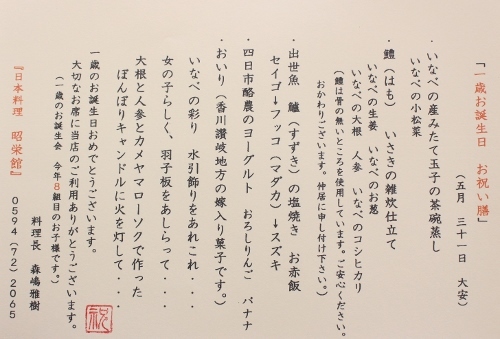 「一歳お誕生日　お祝い膳」
（五月　三十一日　大安）
・いなべの産みたて玉子の茶碗蒸し
いなべの小松菜
・鱧（はも）　いさきの雑炊仕立て
いなべの生姜　いなべのお葱
いなべの大根　人参　いなべのコシヒカリ
（鱧は骨の無いところを使用しています。ご安心ください。
おかわりございます。仲居に申し付け下さい。）
・出世魚　鱸（すずき）の塩焼き　お赤飯
セイゴ→フッコ（マダカ）→スズキ
・四日市酪農のヨーグルト　おろしりんご　バナナ
・おいり（香川讃岐地方の嫁入り菓子です。）
いなべの彩り　水引飾りをあれこれ．．．
女の子らしく、羽子板をあしらって．．．
大根と人参とカメヤマローソクで作った
ぼんぼりキャンドルに火を灯して．．．
一歳のお誕生日おめでとうございます。
大切なお席に当店のご利用ありがとうございます。
（一歳のお誕生会　今年8組目のお子様です。）
料理長　森嶋雅樹
『日本料理　昭栄館』　0594（72）2065
祝